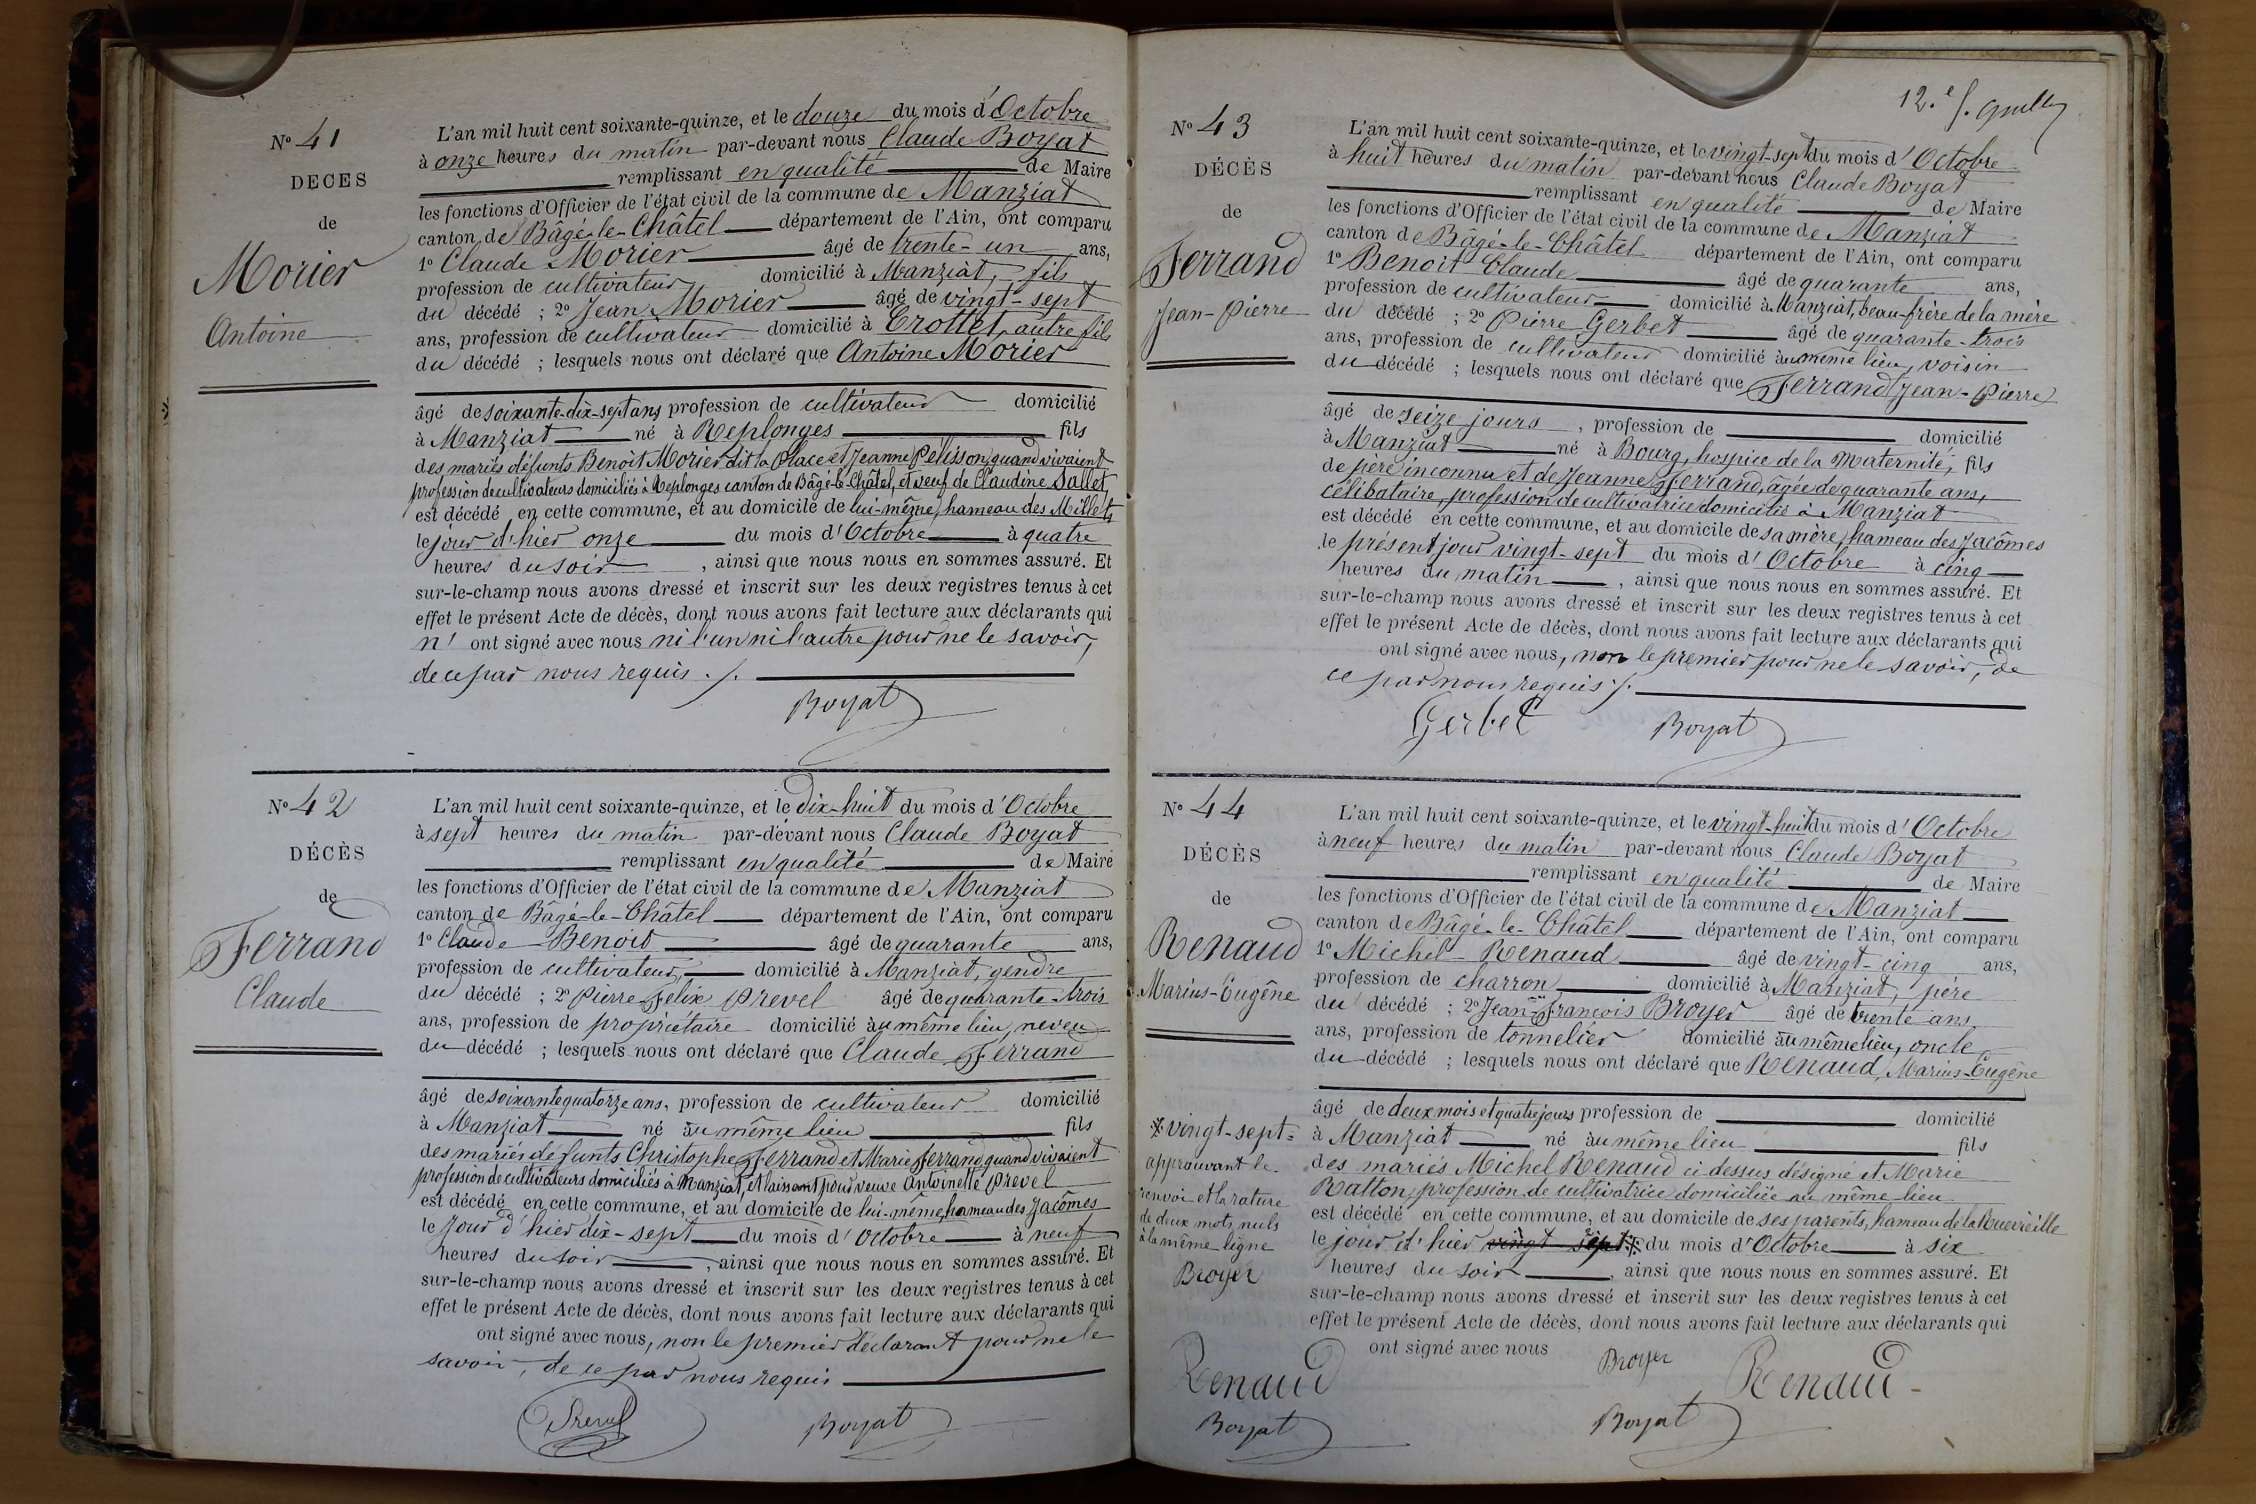 N° 41
DÉCÈS
de
Morier
Antoine
L'an mil huit cent soixante-quinze, et le douze du mois d'Octobre
à onze heures du matin par-devant nous Claude Boyat
remplissant en qualité de Maire
les fonctions d'Officier de l'état civil de la commune de Manziat
canton de Bâgé-le-Châtel département de l'Ain, ont comparu
1° Claude Morier âgé de trente-un ans,
profession de cultivateur domicilié à Manziat, fils
du décédé ; 2° Jean Morier âgé de vingt-sept
ans, profession de cultivateur domicilié à Crottet, autre fils
du décédé ; lesquels nous ont déclaré que Antoine Morier
âgé de soixante-dix-sept ans profession de cultivateur domicilié
à Manziat né à Replonges fils
des mariés défunts Benoit Morier dit la Place et Jeanne Pelisson, quand vivaient
profession de cultivateurs domiciliés à Replonges canton de Bâgé-le-Châtel, et veuf de Claudine Sallet
est décédé en cette commune, et au domicile de lui-même, hameau des Millets
le jour d'hier onze du mois d'Octobre à quatre
heures du soir , ainsi que nous nous en sommes assuré. Et
sur-le-champ nous avons dressé et inscrit sur les deux registres tenus à cet
effet le présent Acte de décès, dont nous avons fait lecture aux déclarants qui
n' ont signé avec nous ni l'un ni l'autre pour ne le savoir,
de ce par nous requis ./.
Boyat
N° 42
DÉCÈS
de
Ferrand
Claude
L'an mil huit cent soixante-quinze, et le dix-huit du mois d'Octobre
à sept heures du matin par-devant nous Claude Boyat
remplissant en qualité de Maire
les fonctions d'Officier de l'état civil de la commune de Manziat
canton de Bâgé-le-Châtel département de l'Ain, ont comparu
1° Claude Benoit âgé de quarante ans,
profession de cultivateur, domicilié à Manziat, gendre
du décédé ; 2° Pierre-Felix Prevel âgé de quarante-trois
ans, profession de propriétaire domicilié au même lieu, neveu
du décédé ; lesquels nous ont déclaré que Claude Ferrand
âgé de soixante quatorze ans, profession de cultivateur domicilié
à Manziat né au même lieu fils
des mariés défunts Christophe Ferrand et Marie Ferrand quand vivaient
profession de cultivateurs domiciliés à Manziat, et laissant pour veuve Antoinette Prevel
est décédé en cette commune, et au domicile de lui-même, hameau des Jacômes
le jour d'hier dix-sept du mois d'Octobre à neuf
heures du soir , ainsi que nous nous en sommes assuré. Et
sur-le-champ nous avons dressé et inscrit sur les deux registres tenus à cet
effet le présent Acte de décès, dont nous avons fait lecture aux déclarants qui
ont signé avec nous, non le premier déclarant pour ne le
savoir, de ce par nous requis
Prevel Boyat
12.e f.
N° 43
DÉCÈS
de
Ferrand
Jean-Pierre
L'an mil huit cent soixante-quinze, et le vingt-sept du mois d'Octobre
à huit heures du matin par-devant nous Claude Boyat
remplissant en qualité de Maire
les fonctions d'Officier de l'état civil de la commune de Manziat
canton de Bâgé-le-Châtel département de l'Ain, ont comparu
1° Benoit Claude âgé de quarante ans,
profession de cultivateur domicilié à Manziat, beau-frère de la mère
du décédé ; 2° Pierre Gerbet âgé de quarante-trois
ans, profession de cultivateur domicilié au même lieu, voisin
du décédé ; lesquels nous ont déclaré que Ferrand Jean-Pierre
âgé de seize jours , profession de domicilié
à Manziat né à Bourg, hospice de la Maternité, fils
de père inconnu et de Jeanne Ferrand, âgée de quarante ans,
célibataire, profession de cultivatrice domiciliée à Manziat
est décédé en cette commune, et au domicile de sa mère, hameau des Jacômes
le présent jour vingt-sept du mois d'Octobre à cinq
heures du matin , ainsi que nous nous en sommes assuré. Et
sur-le-champ nous avons dressé et inscrit sur les deux registres tenus à cet
effet le présent Acte de décès, dont nous avons fait lecture aux déclarants qui
ont signé avec nous, non le premier pour ne le savoir, de
ce par nous requis ./.
Gerbet Boyat
N° 44
DÉCÈS
de
Renaud
Marius-Eugêne
L'an mil huit cent soixante-quinze, et le vingt-huit du mois d'Octobre
à neuf heures du matin par-devant nous Claude Boyat
remplissant en qualité de Maire
les fonctions d'Officier de l'état civil de la commune de Manziat
canton de Bâgé-le-Châtel département de l'Ain, ont comparu
1° Michel Renaud âgé de vingt-cinq ans,
profession de charron domicilié à Manziat, père
du décédé ; 2° Jean-François Broyer âgé de trente ans
ans, profession de tonnelier domicilié au même lieu, oncle
du décédé ; lesquels nous ont déclaré que Renaud, Marius-Eugêne
âgé de deux mois et quatre jours profession de domicilié
à Manziat né au même lieu fils
des mariés Michel Renaud ci-dessus désigné et Marie
Ratton, profession de cultivatrice domiciliée au même lieu
est décédé en cette commune, et au domicile de ses parents, hameau de la
le jour d'hier vingt sept * du mois d'Octobre à six
heures du soir , ainsi que nous nous en sommes assuré. Et
sur-le-champ nous avons dressé et inscrit sur les deux registres tenus à cet
effet le présent Acte de décès, dont nous avons fait lecture aux déclarants qui
ont signé avec nous
* vingt-sept =
approuvant le
renvoi et la rature
de deux mots nuls
à la même ligne
Broyer
Renaud Broyer Renaud
Boyat Boyat